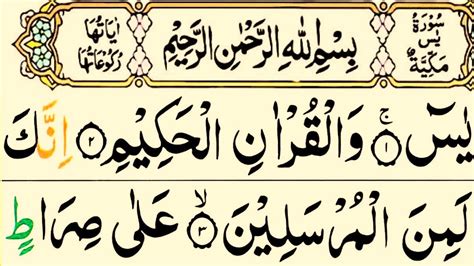 سُوْرَةُ يٰسٓ مَكِّيَّةٌ
بِسْمِ اللّٰهِ الرَّحْمٰنِ الرَّحِيْمِ
اٰيَاتُهَا رُكُوْعَاتُهَا
يٰسٓ ۚ ۝١ وَالْقُرْاٰنِ الْحَكِيْمِ ۝٢ اِنَّكَ
لَمِنَ الْمُرْسَلِيْنَ ۙ ۝٣ عَلٰى صِرَاطٍ